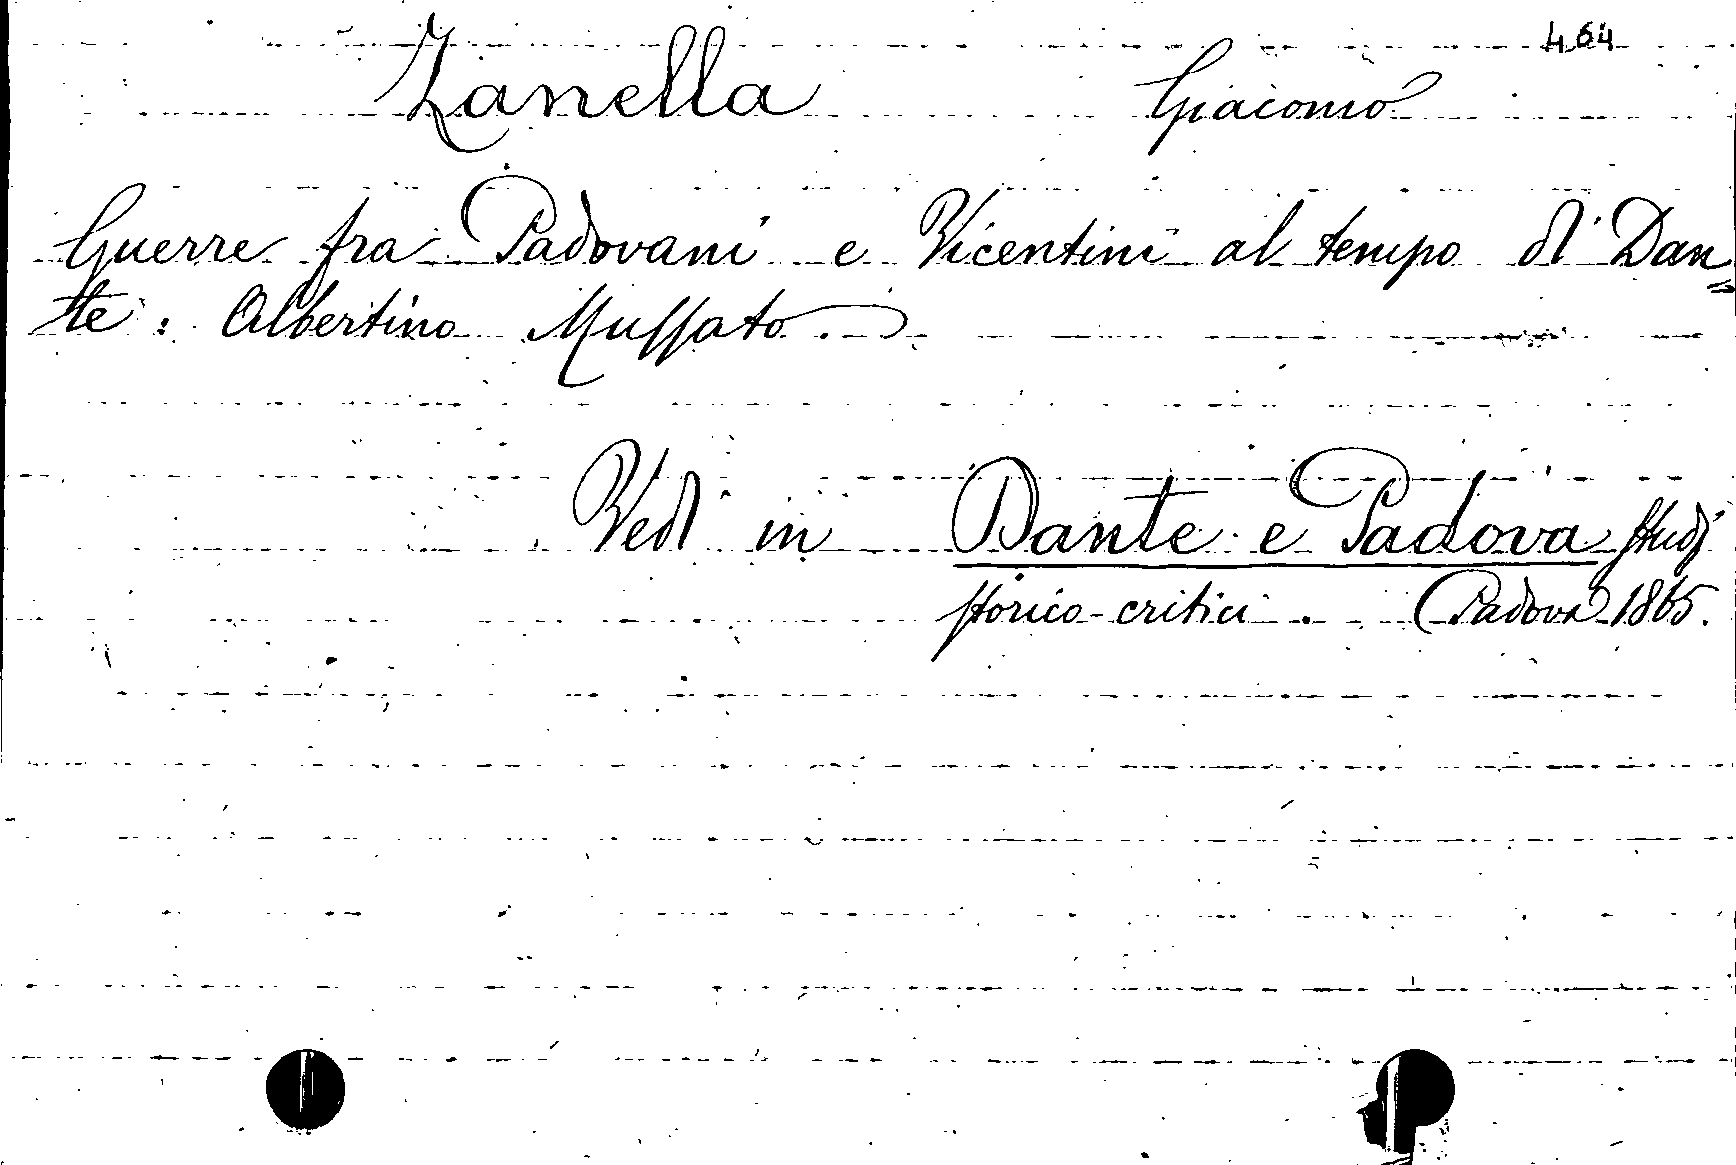 464
Zanella Giacomo
Guerre fra Padovani e Vicentini al tempo di Dan=
te: Albertino Mussato.
Vedi in Dante e Padova studj
storico-critici. (Padova 1865.